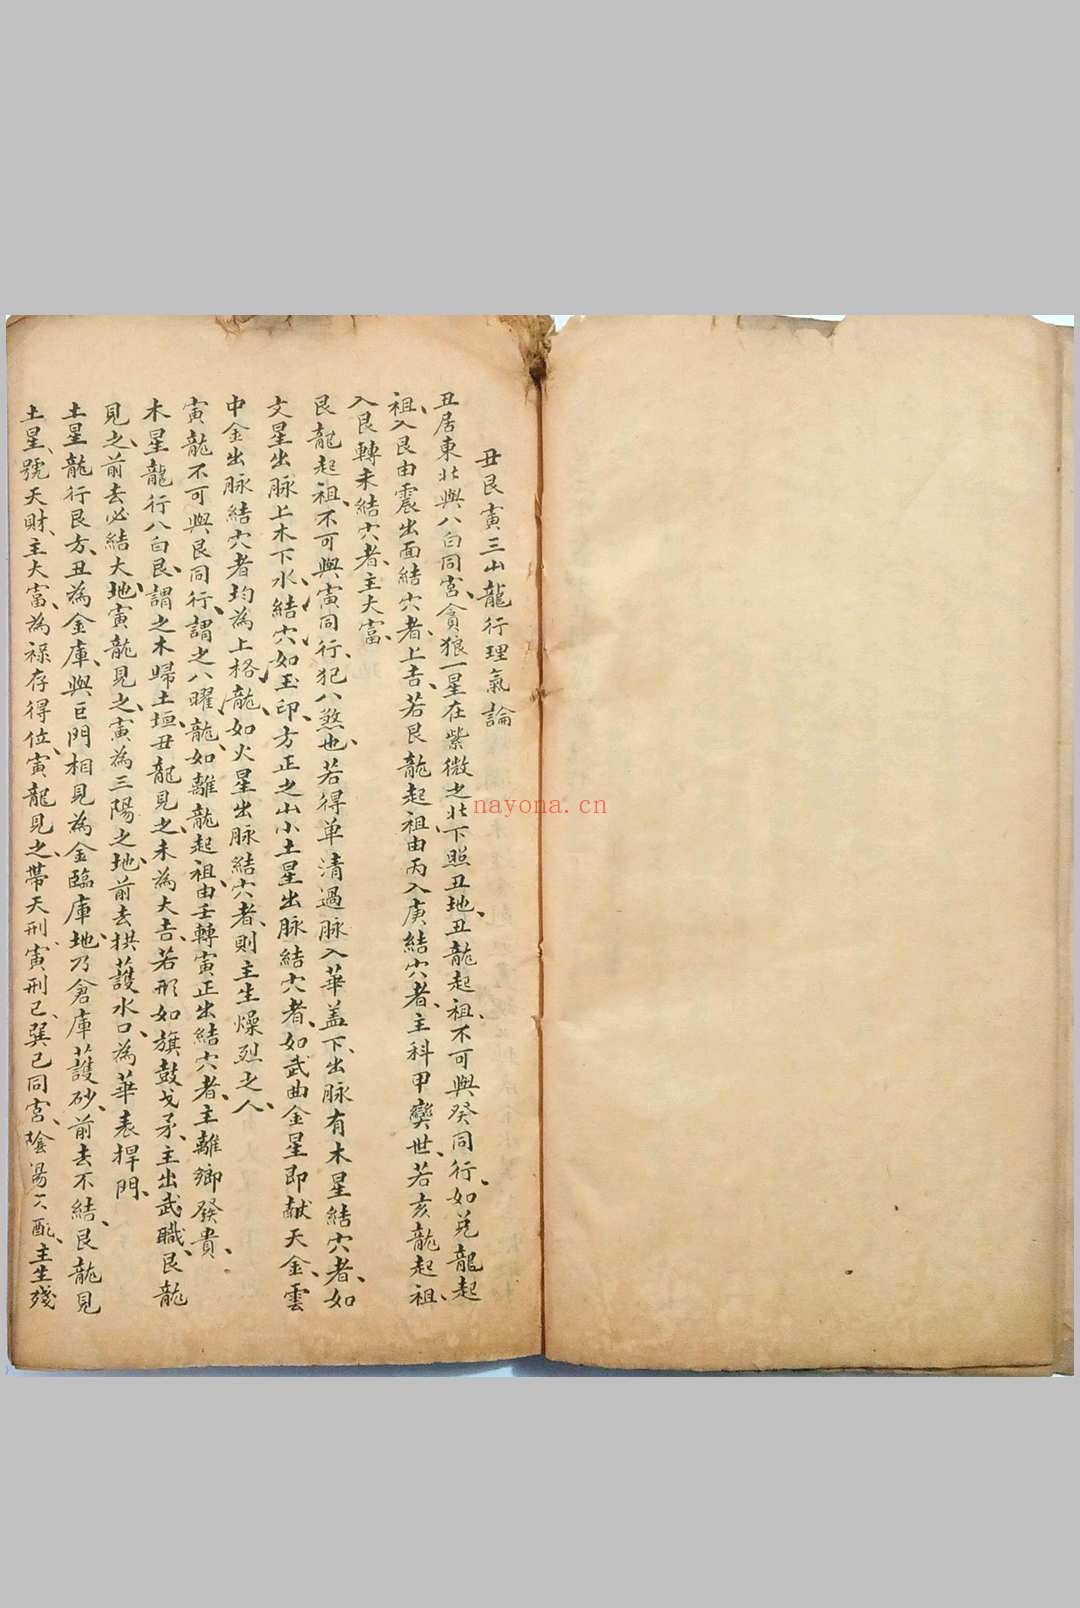 丑艮寅三山龍行理氣論
丑居東北與八白同宮、貪狼一星在紫微之北下照丑地、丑龍起祖、不可與癸同行、如兌龍起
祖、入艮由震出面結穴者、上吉、若艮龍起祖、由丙入庚結穴者、主科甲奕世、若亥龍起祖、
入艮轉未結穴者、主大富、
艮龍起祖、不可與寅同行、犯八煞也、若得单清過脉入華盖、下出脉有木星結穴者、如
文星出脉上木下水、結穴、如玉印、方正之山小土星出脉結穴者、如武曲金星即献天金、雲
中金出脉結穴者均為上格龍、如火星出脉結穴者、則主生燥烈之人、
寅龍不可與艮同行、謂之八曜龍、如離龍起祖、由壬轉寅正出結穴者、主離鄉發貴、
木星龍行八白艮、謂之木歸土垣、丑龍見之未為大吉、若形如旗鼓戈矛、主出武職、艮龍
見之、前去必結大地、寅龍見之、寅為三陽之地、前去拱護水口、為華表捍門、
土星龍行艮方、丑為金庫、與巨門相見為金臨庫地、乃倉庫護砂、前去不結、艮龍見
土星、號天財、主大富、為祿存得位、寅龍見之、帶天刑寅刑巳、巽巳同宮、陰陽不配、主生殘
nayona.cn